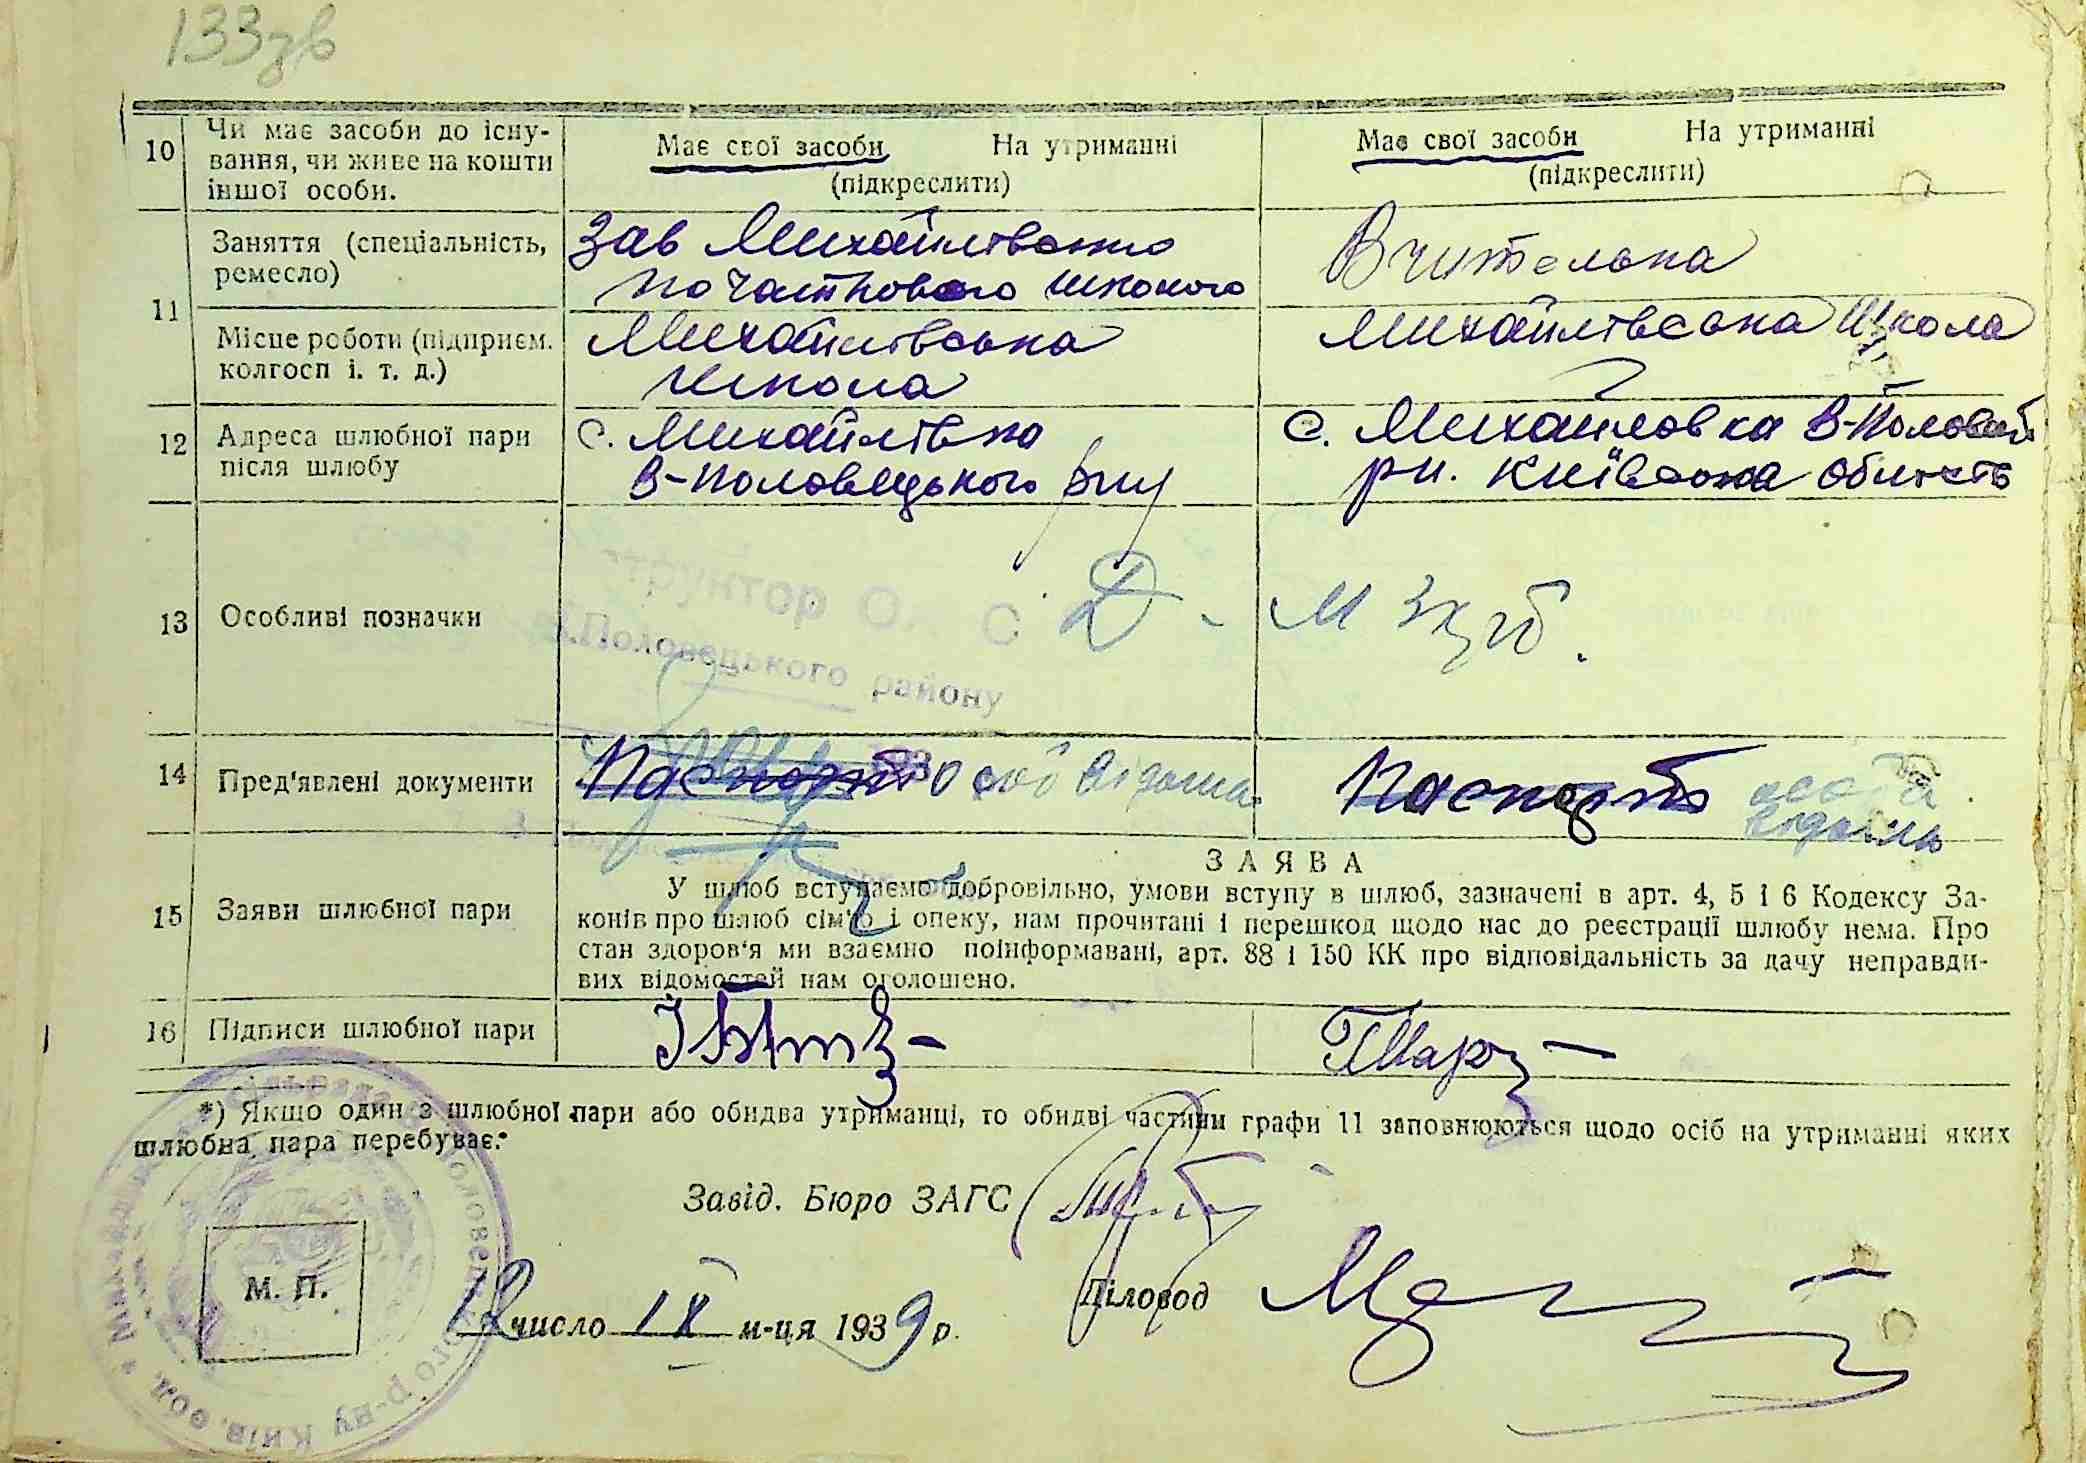 133зв
10 Чи має засоби до існу-
вання, чи живе на кошти
іншої особи.
Має свої засоби На утриманні
(підкреслити)
Має свої засоби На утриманні
(підкреслити)
11 Заняття (спеціальність,
ремесло)
Зав Михайлівською
початкового школою
Вчителька
Місце роботи (підприєм.
колгосп і. т. д.)
Михайлівська
школа
Михайлівська школа
12 Адреса шлюбної пари
після шлюбу
с. Михайлівка
В-Половецького р-ну
с. Михайловка В-Половец
рн. Київська область
13 Особливі позначки
структор О. С.
В.Половецького району
14 Пред'явлені документи
Паспорт особ
Паспорт особ
15 Заяви шлюбної пари
ЗАЯВА
У шлюб вступаємо добровільно, умови вступу в шлюб, зазначені в арт. 4, 5 і 6 Кодексу За-
конів про шлюб сім'ю і опеку, нам прочитані і перешкод щодо нас до реєстрації шлюбу нема. Про
стан здоров'я ми взаємно поінформавані, арт. 88 і 150 КК про відповідальність за дачу неправди-
вих відомостей нам оголошено.
16 Підписи шлюбної пари
*) Якщо один з шлюбної пари або обидва утриманці, то обидві частини графи 11 заповнюються щодо осіб на утриманні яких
шлюбна пара перебуває.
Завід. Бюро ЗАГС
М. П.
число IX м-ця 1939 р.
Діловод